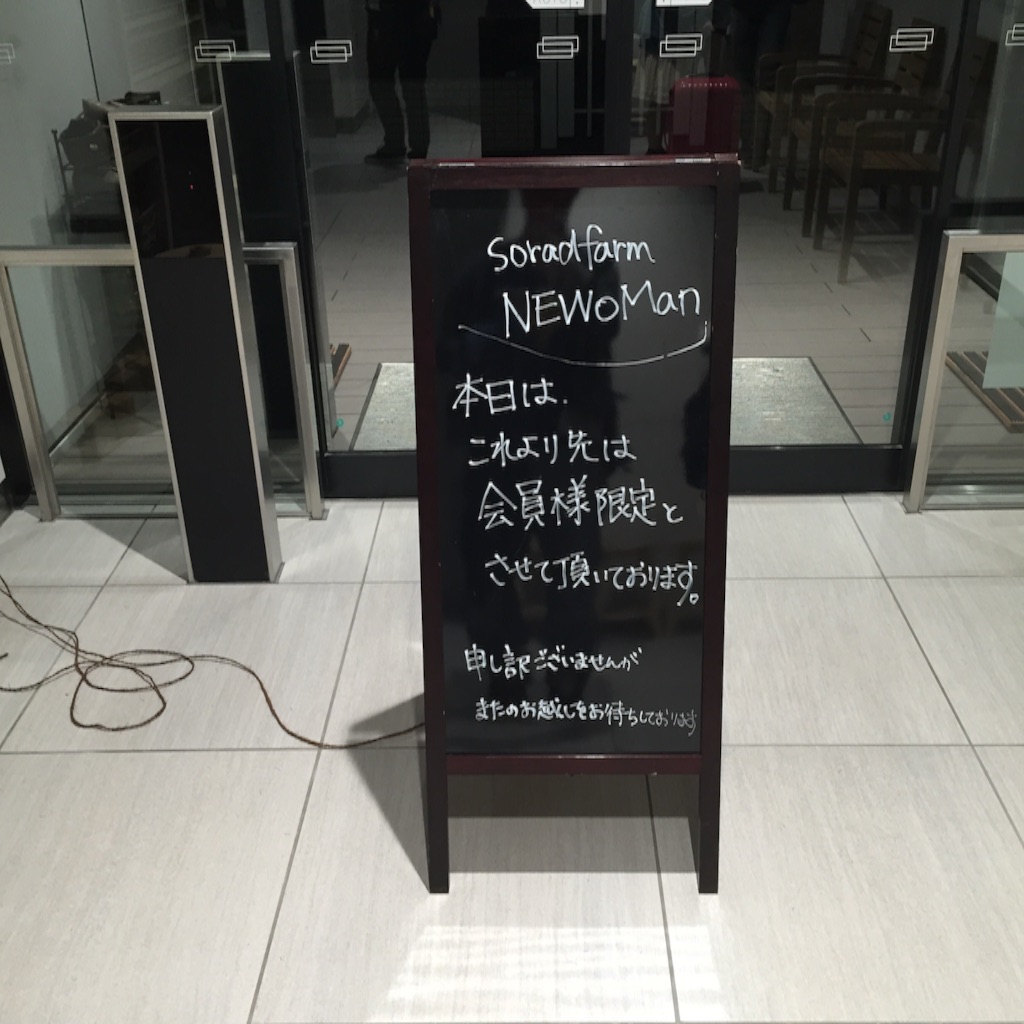 soradfarm
NEWoMan
本日は.
これより先は
会員様限定と
させて頂いております。
申し訳ございませんが
またのお越しをお待ちしております